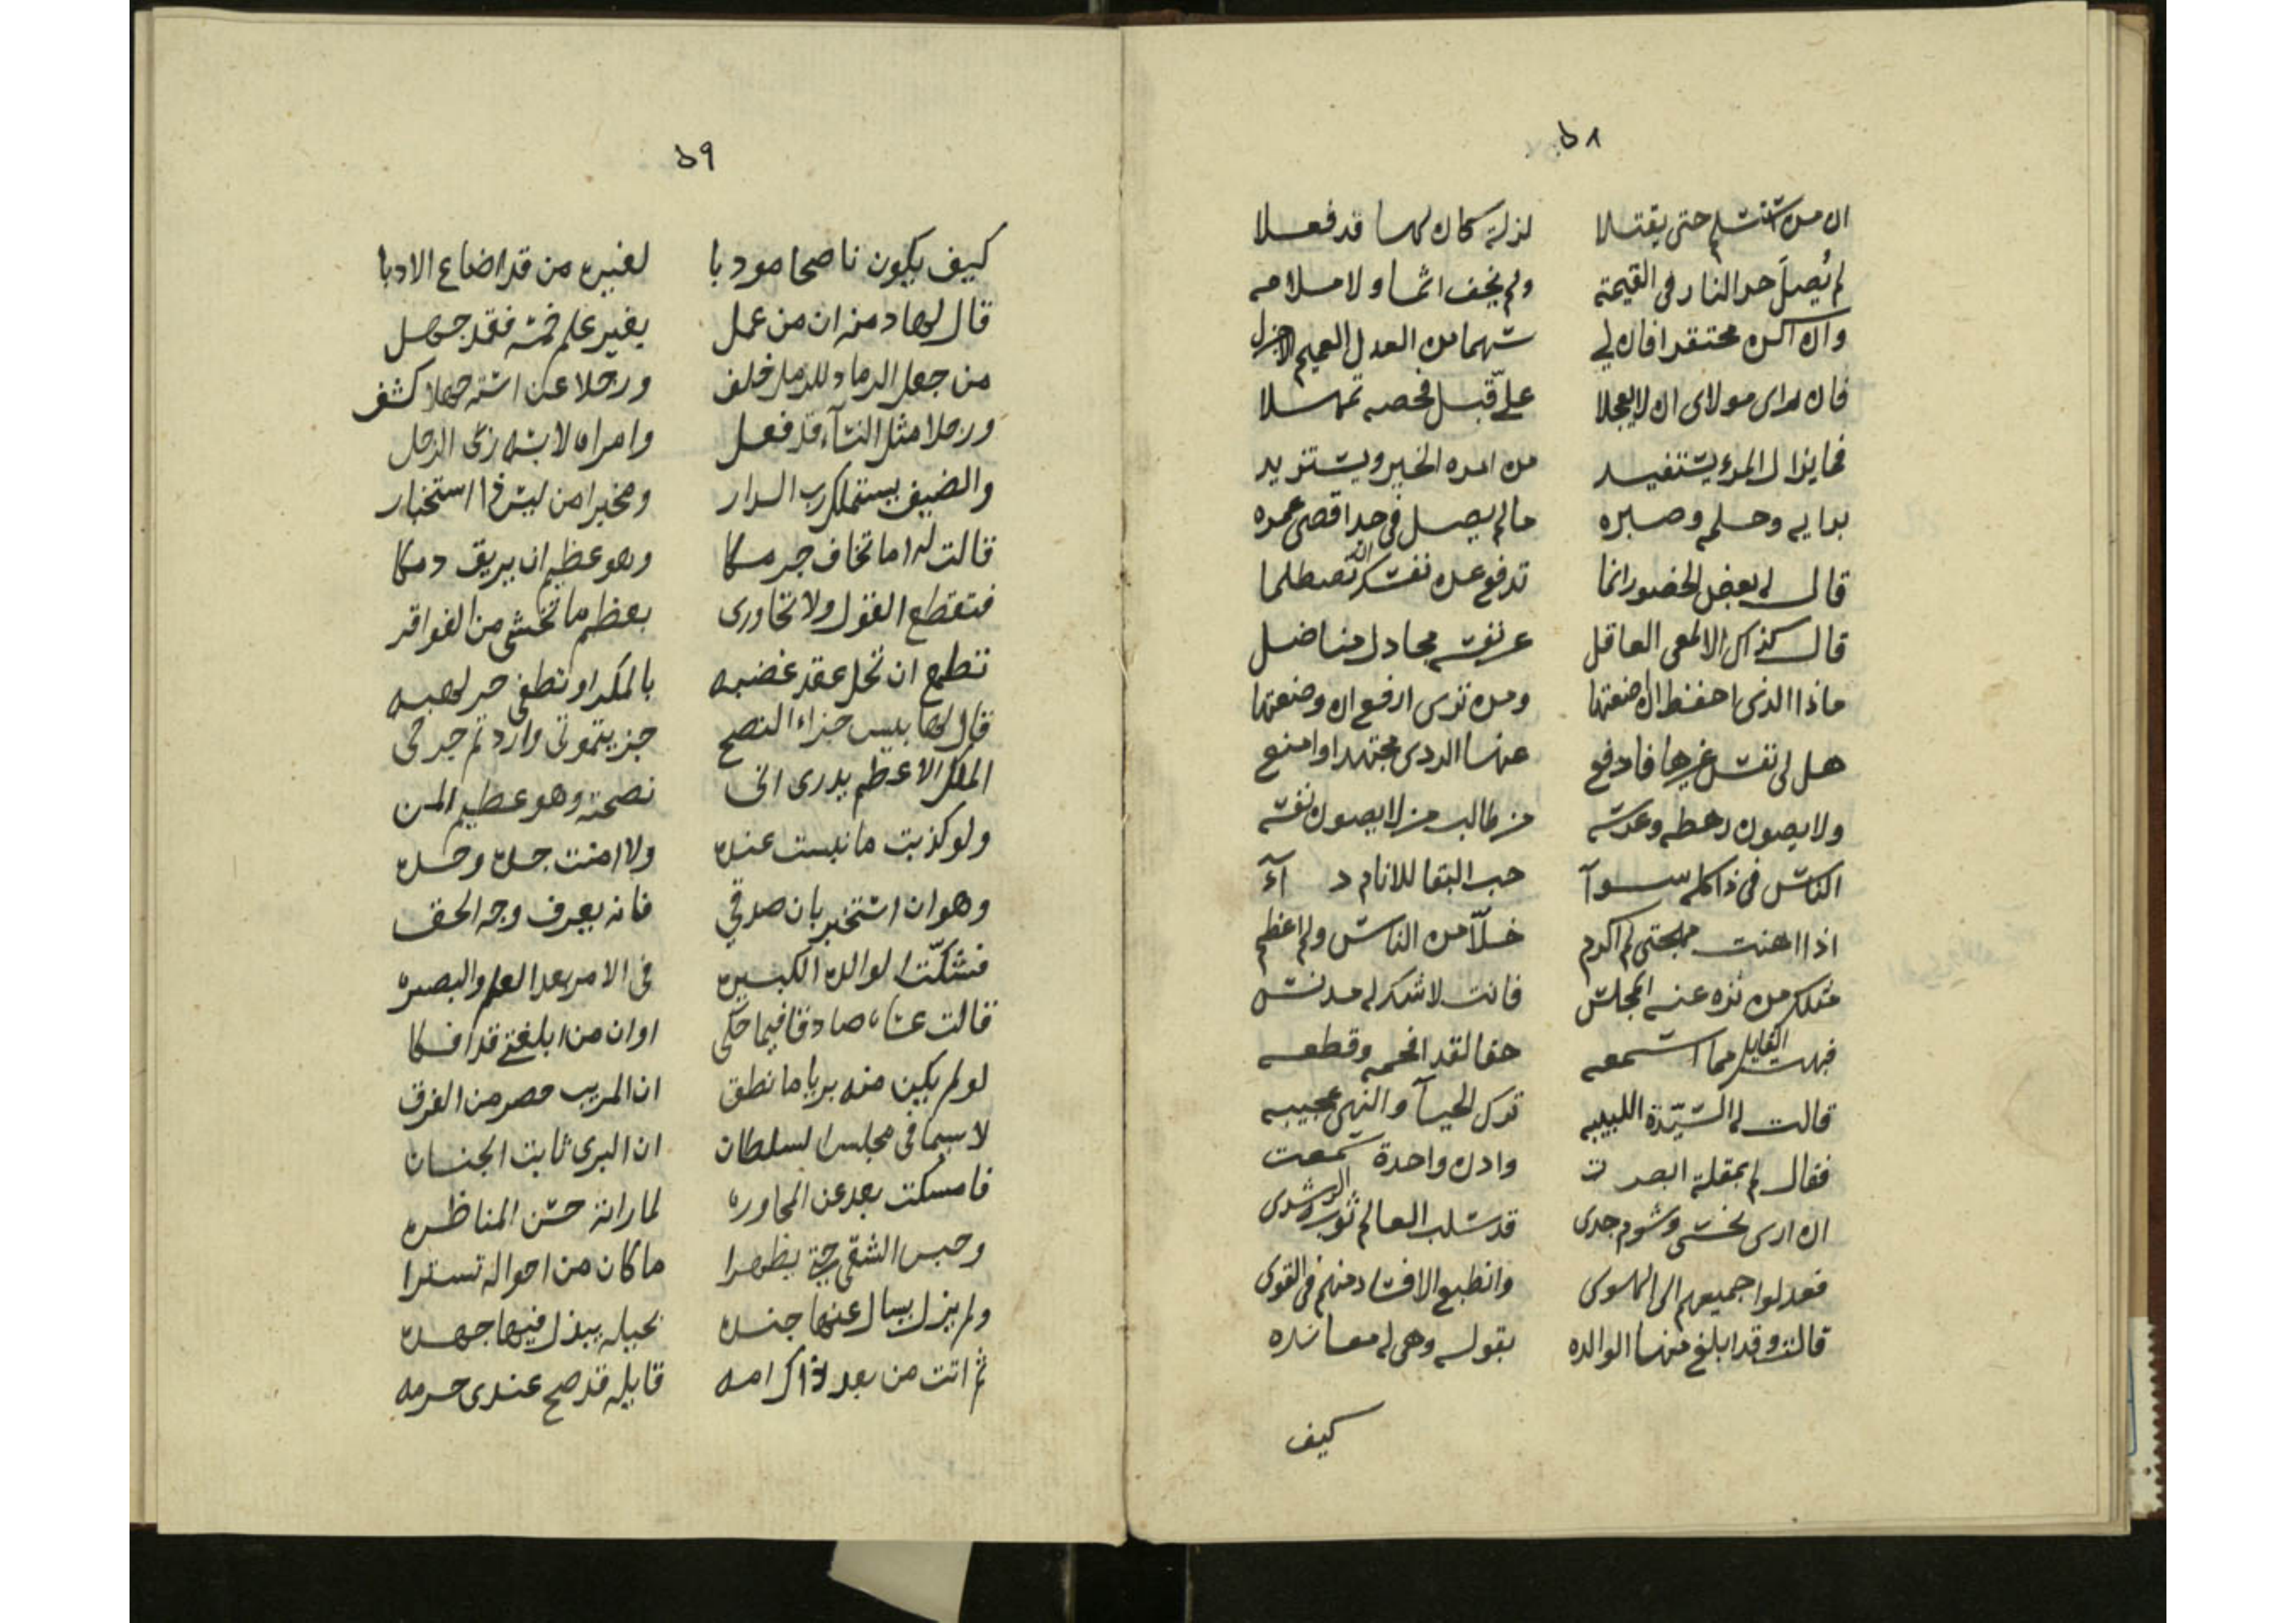 ٥٨
ان من استسلم حتى يقتلا لزلة كان لها قد فعلا
لم يُصلَ حر النار فى القيمة ولم يخف اثما ولا ملامه
وان اكن محتقرا فان لي سهما من العدل العميم الاجزل
فان راى مولاى ان لا يعجلا علىّ قبل فحصه تمهلا
فما يزال المرء يستفيد من امره الخير ويستزيد
برايه وحلمه وصبره ما لم يصل فى حد اقصى عمره
قال له بعض الحضور انما تدفع عن نفسك ان تصطلما
قال كذاك الالمعى العاقل عن نفسه مجادل مناضل
ماذا الذى احفظ ان ضيعتها ومن ترى ارفع ان وضعتها
هل لى نفس غيرها فادفع عنها الردى مجتهدا وامنع
ولا يصون رهطه وعرسه من طالب من لا يصون نفسه
الناس فى ذا كلهم سوآ حب البقا للانام دآء
اذا اهنت مهجتى لم اكرم خلّا من الناس ولم اعظم
مثلك من نزه عنه المجلس فانت لا شك له مدنس
فبهت القايل مما استمعه حقا لقد افحمه وقطعه
قالت له السيّدة اللبيبه ترك الحيآ والنهى عجيبه
فقال لم بمقلة ابصرت واذن واحدة سمعت
ان ارى نحسى وشوم جدى قد سلب العالم ثوب الرشد
فعدلوا جميعهم الى الهوى وانطبع الافساد منهم فى القوى
قالت وقد ابلغ منها الوالده بقوله وهى له معانده
كيف
٥٩
كيف يكون ناصحا مودبا لغيره من قد اضاع الادبا
قال لها دمنه ان من عمل بغير علم ثمّه فقد جهل
من جعل الرماد للرمل خلف ورجلا عن استه جهلا كشف
ورجلا مثل النسآء قد فعل وامراه لابسه زى الرجل
والضيف يستملك رب الدار ومخبرا من ليس فى استخبار
قالت له اما تخاف جرمكا وهو عظيم ان يريق دمكا
فتقطع القول ولا تحاورى بعظم ما تخشى من الفواقر
تطمع ان تحل عقد غضبه بالمكر او تطفى حر لهبه
قال لها بيس جزاء النصح جزيتمونى واردتم جرحى
الملك الاعظم يدرى انى نصحته وهو عظيم المن
ولو كذبت ما نبست عنده ولا امنت جده وحده
وهو ان استخبر بان صدقي فانه يعرف وجه الحق
فشكّت الوالدة الكبيره فى الامر بعد العلم والبصيره
قالت عساه صادقا فيما حكى او ان من ابلغنى قد افكا
لو لم يكن منه بريا ما نطق ان المريب حصر من الفرق
لا سيما فى مجلس السلطان ان البرى ثابت الجنان
فامسكت بعد عن المحاوره لما راته حسن المناظره
وحبس الشقى حتى يظهرا ما كان من احواله تسترا
ولم يزل يسال عنها جنده بحيله يبذل فيها جهده
ثم اتت من بعد ذاك امه قايله قد صح عندى جرمه